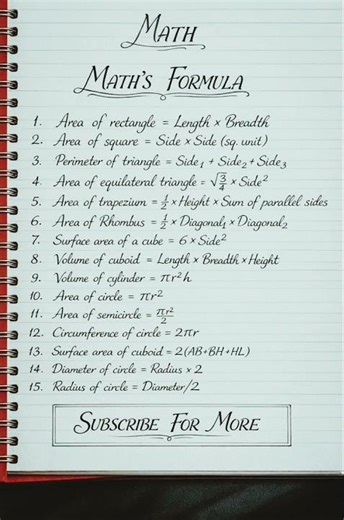 MATH
MATH'S FORMULA
1. Area of rectangle = Length × Breadth
2. Area of square = Side × Side (sq. unit)
3. Perimeter of triangle = Side₁ + Side₂ + Side₃
4. Area of equilateral triangle = √3/4 × Side²
5. Area of trapezium = 1/2 × Height × Sum of parallel sides
6. Area of Rhombus = 1/2 × Diagonal₁ × Diagonal₂
7. Surface area of a cube = 6 × Side²
8. Volume of cuboid = Length × Breadth × Height
9. Volume of cylinder = πr²h
10. Area of circle = πr²
11. Area of semicircle = πr²/2
12. Circumference of circle = 2πr
13. Surface area of cuboid = 2(AB+BH+HL)
14. Diameter of circle = Radius × 2
15. Radius of circle = Diameter/2
SUBSCRIBE FOR MORE